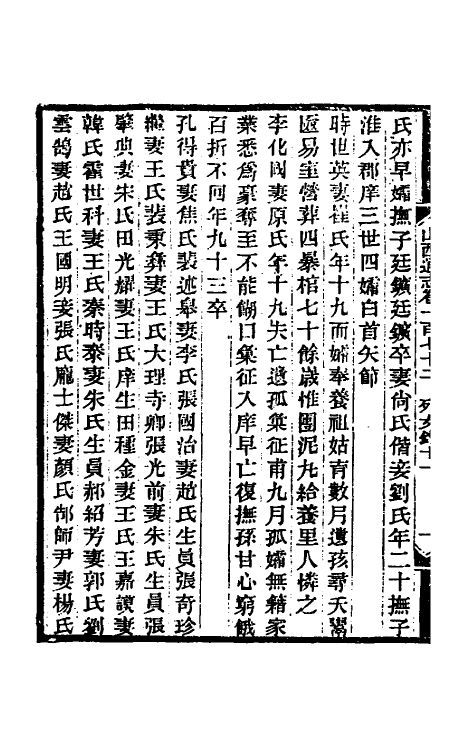 氏亦早孀撫子廷鑛廷鑛卒妻尙氏偕妾劉氏年二十撫子
淮入郡庠三世四孀白首矢節
時世英妻崔氏年十九而孀奉養祖姑育數月遺孩尋夭鬻
匲易室營葬四暴棺七十餘歲惟團泥丸給養里人憐之
李化國妻原氏年十九夫亡遺孤彙征甫九月孤孀無藉家
業悉爲豪奪至不能餬口彙征入庠早亡復撫孫甘心窮餓
百折不回年九十三卒
孔得貴妻焦氏裴述皋妻李氏張國治妻趙氏生員張奇珍
繼妻王氏裴秉彝妻王氏大理寺卿張光前妻朱氏生員張
肇典妻朱氏田光耀妻王氏庠生田種金妻王氏王嘉謨妻
韓氏霍世科妻王氏秦時泰妻朱氏生員郝紹芳妻郭氏劉
雲鵠妻趙氏王國明妾張氏龐士傑妻顏氏郇師尹妻楊氏
山西通志卷一百七十二 列女錄十一 一